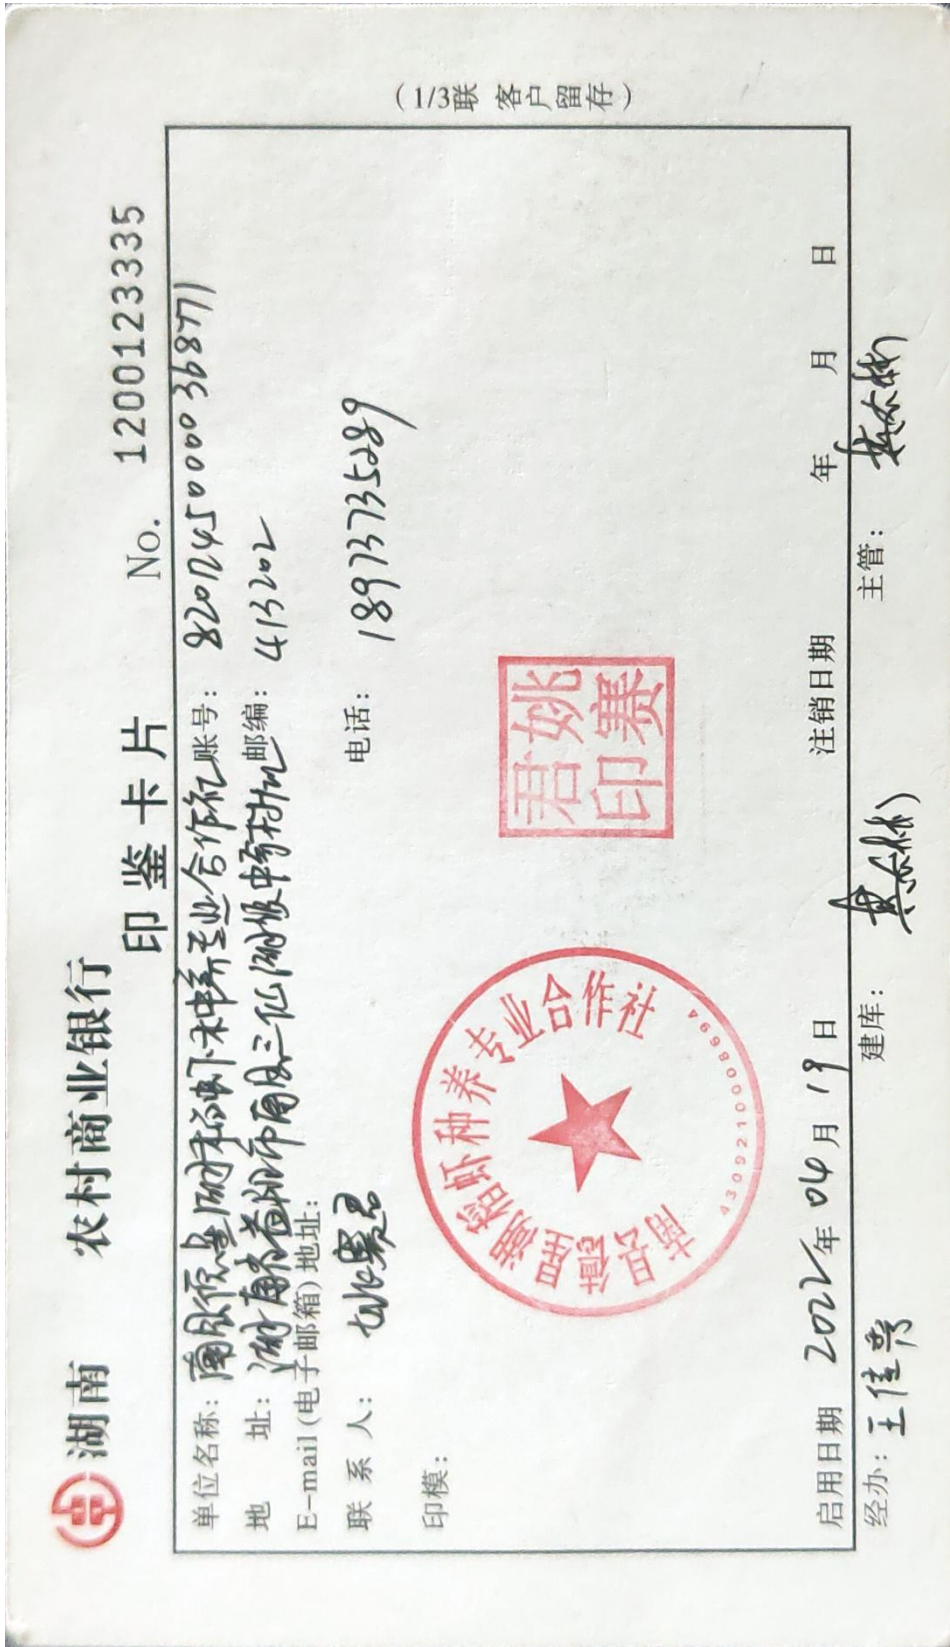 湖南 农村商业银行
印鉴卡片 No. 1200123335
单位名称: 南县 湖 虾 种养专业合作社 账号: 82012450000368771
地 址: 湖南省益阳市南县三仙湖镇中 村 邮编: 413202
E-mail(电子邮箱)地址:
联系人: 姚赛君 电话: 18973735289
印模:
南县 镇 湖 稻虾种养专业合作社
4309210008694
姚赛君印
启用日期 2022年04月19日 注销日期 年 月 日
经办: 王佳 建库: 主管:
(1/3联 客户留存)